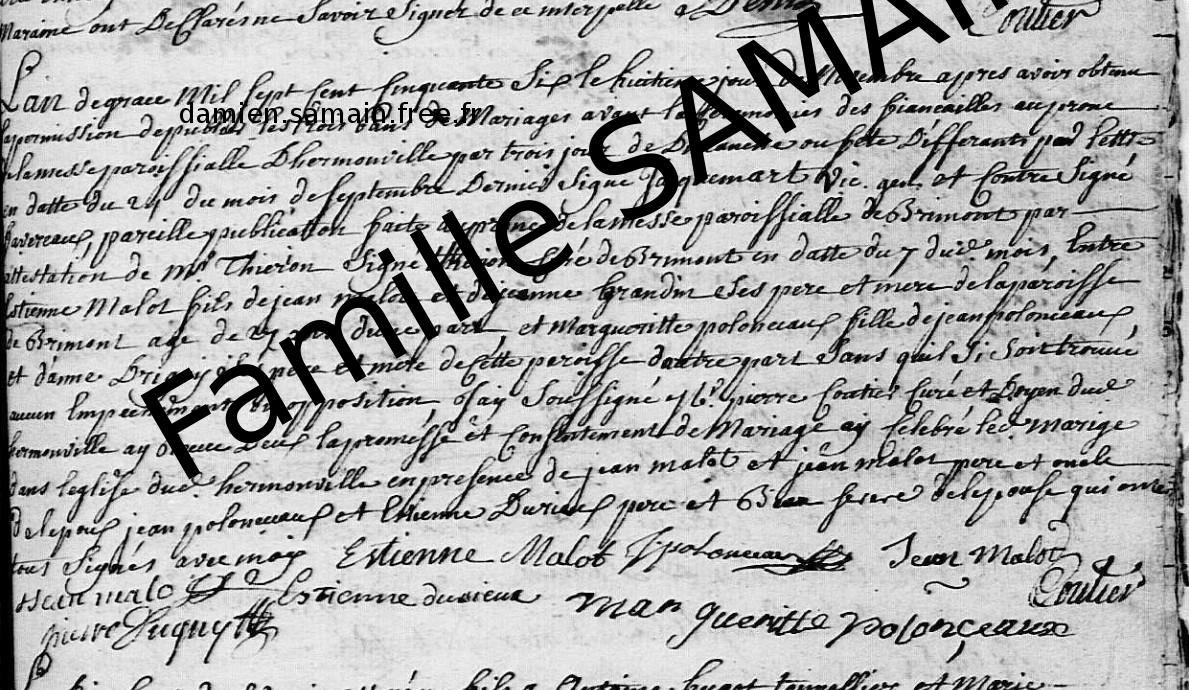 Maraine ont Declaréene Savoir Signer de ce interpellé
Coutier
Lan de grace Mil Sept Cent Cinquante Six le huitieme jour de Novembre apres avoir obtenu
damien.samain.free.fr
la permission de publier les trois bans de Mariages avant la des fiancailles au prone
de la messe paroissialle Dhermonville par trois jour de Dimanche ou fete Differants par lettre
en datte du 21 du mois de Septembre Dernier Signé Jacquemart Vic. gen. et Contre Signé
pareille publication faite au prone de la messe paroissialle de Brimont par
attestation de mr Thieron Signé Thieron Curé de Brimont en datte du 7 dud. mois, Entre
Estienne Malot fils de jean malot et de jeanne Grandin Ses pere et mere de la paroisse
de Brimont agé de 27 ans dune part et Margueritte polonceaux fille de jean polonceaux
et danne pere et mere de cette peroisse dautre part Sans quil Si Soit trouvé
aucun Empechement ou opposition Jay Soussigné pierre Coutier Curé et Doyen dud.
hermonville ay recue Deux la promésse et Consentement de Mariage ay Celebré led. marige
dans leglise dud. hermonville en presence de jean malot et jean malot pere et oncle
de lepoux jean polonceaux et Estienne Durieux pere et de lepouse qui ont
tous Signés avec moy Estienne Malot J polonceau Jean Malot
Jean malo Estienne durieux Coutier
pierre Mar gueritte polonçeaux
Famille SAMAIN